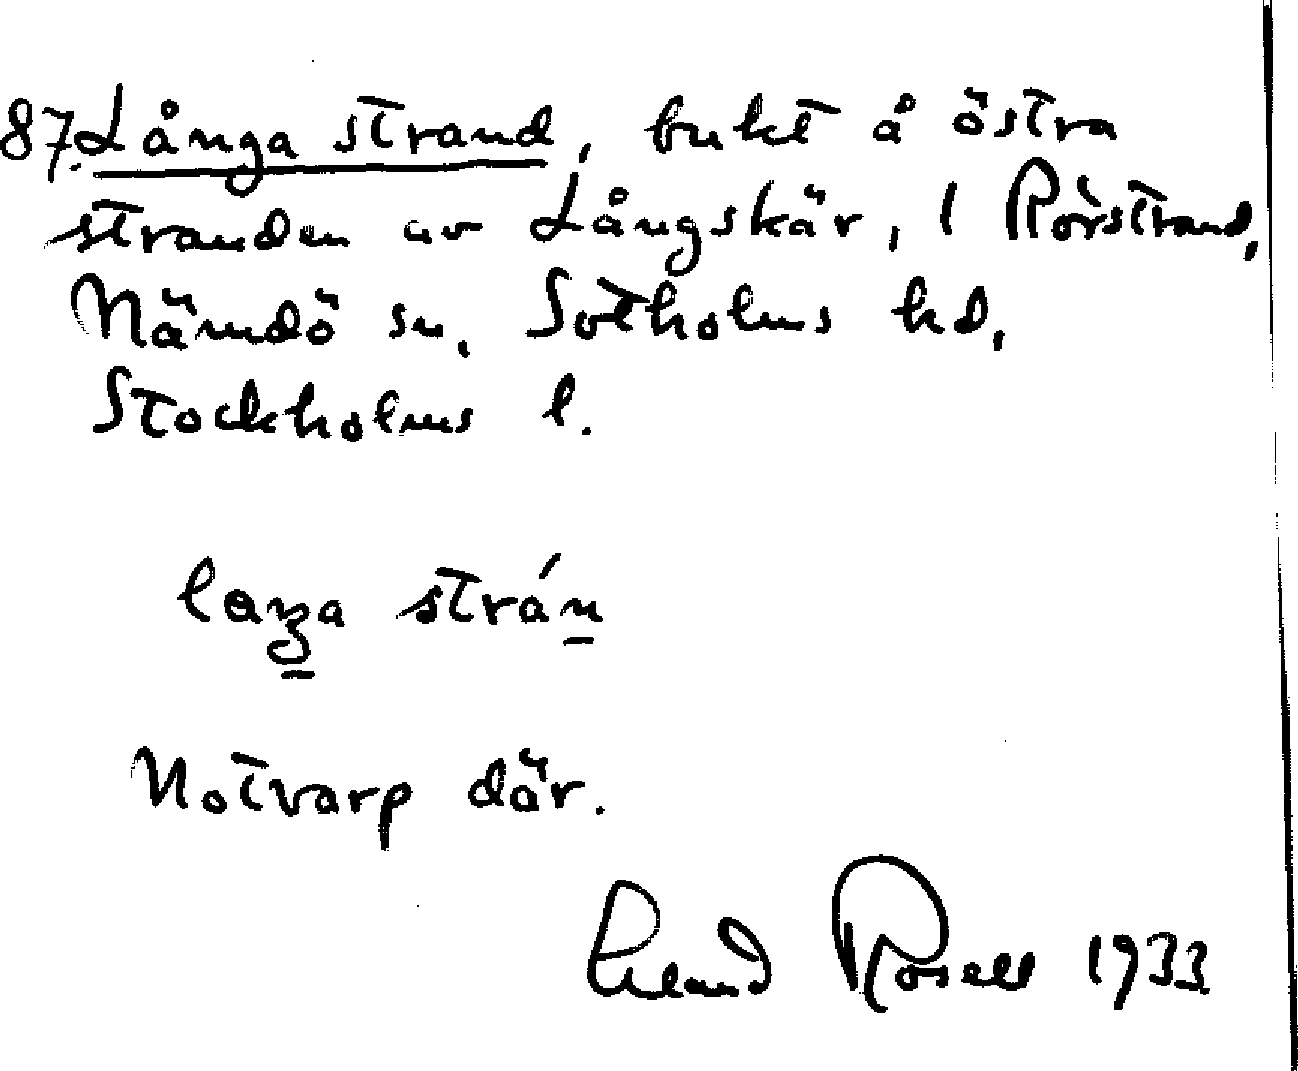 87. Långa strand, bukt å östra
stranden av Långskär, 1 Rörstrand,
Nämdö sn, Sotholms hd,
Stockholms l.
strán
Notvarp där.
Erland Rosell 1933